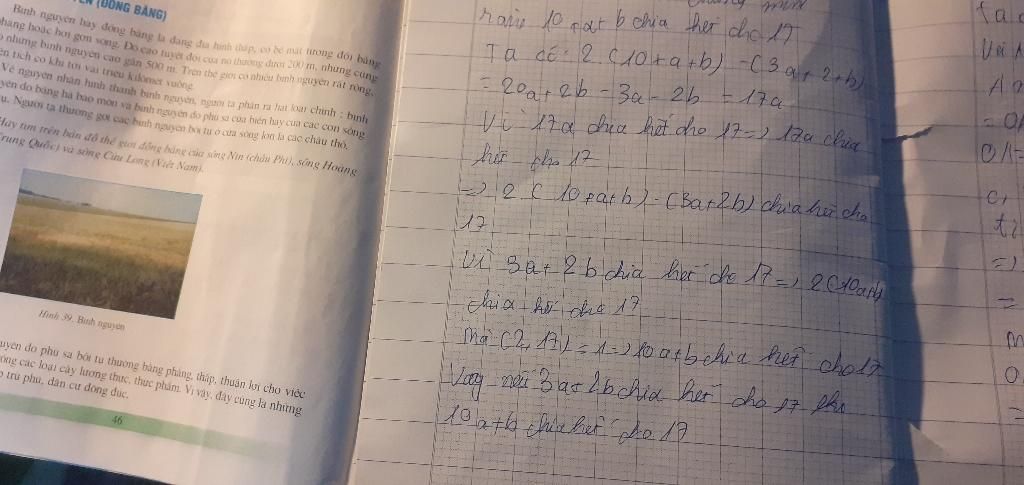 (ĐỒNG BẰNG)
Bình nguyên hay đồng bằng là dạng địa hình thấp, có bề mặt tương đối bằng
phẳng hoặc hơi gợn sóng. Độ cao tuyệt đối của nó thường dưới 200 m, nhưng cũng
những bình nguyên cao gần 500 m. Trên thế giới có nhiều bình nguyên rất rộng,
tích có khi tới vài triệu kilômét vuông.
Về nguyên nhân hình thành bình nguyên, người ta phân ra hai loại chính : bình
do băng hà bào mòn và bình nguyên do phù sa của biển hay của các con sông
tụ. Người ta thường gọi các bình nguyên bồi tụ ở cửa sông lớn là các châu thổ.
Hãy tìm trên bản đồ thế giới đồng bằng của sông Nin (châu Phi), sông Hoàng
Trung Quốc) và sông Cửu Long (Việt Nam).
Hình 39. Bình nguyên
do phù sa bồi tụ thường bằng phẳng, thấp, thuận lợi cho việc
các loại cây lương thực, thực phẩm. Vì vậy, đây cũng là những
trù phú, dân cư đông đúc.
46
10 + a + b chia hết cho 17
Ta có: 2 (10 + a + b) - (3a + 2 + b)
= 20a + 2b - 3a - 2b = 17a
Vì 17a chia hết cho 17 => 17a chia
hết cho 17
=> 2 (10 + a + b) - (3a + 2b) chia hết cho
17
Vì 3a + 2b chia hết cho 17 => 2(10a+b)
chia hết cho 17
Mà (2, 17) = 1 => 10a + b chia hết cho 17
Vậy nếu 3a + 2b chia hết cho 17 thì
10a + b chia hết cho 17